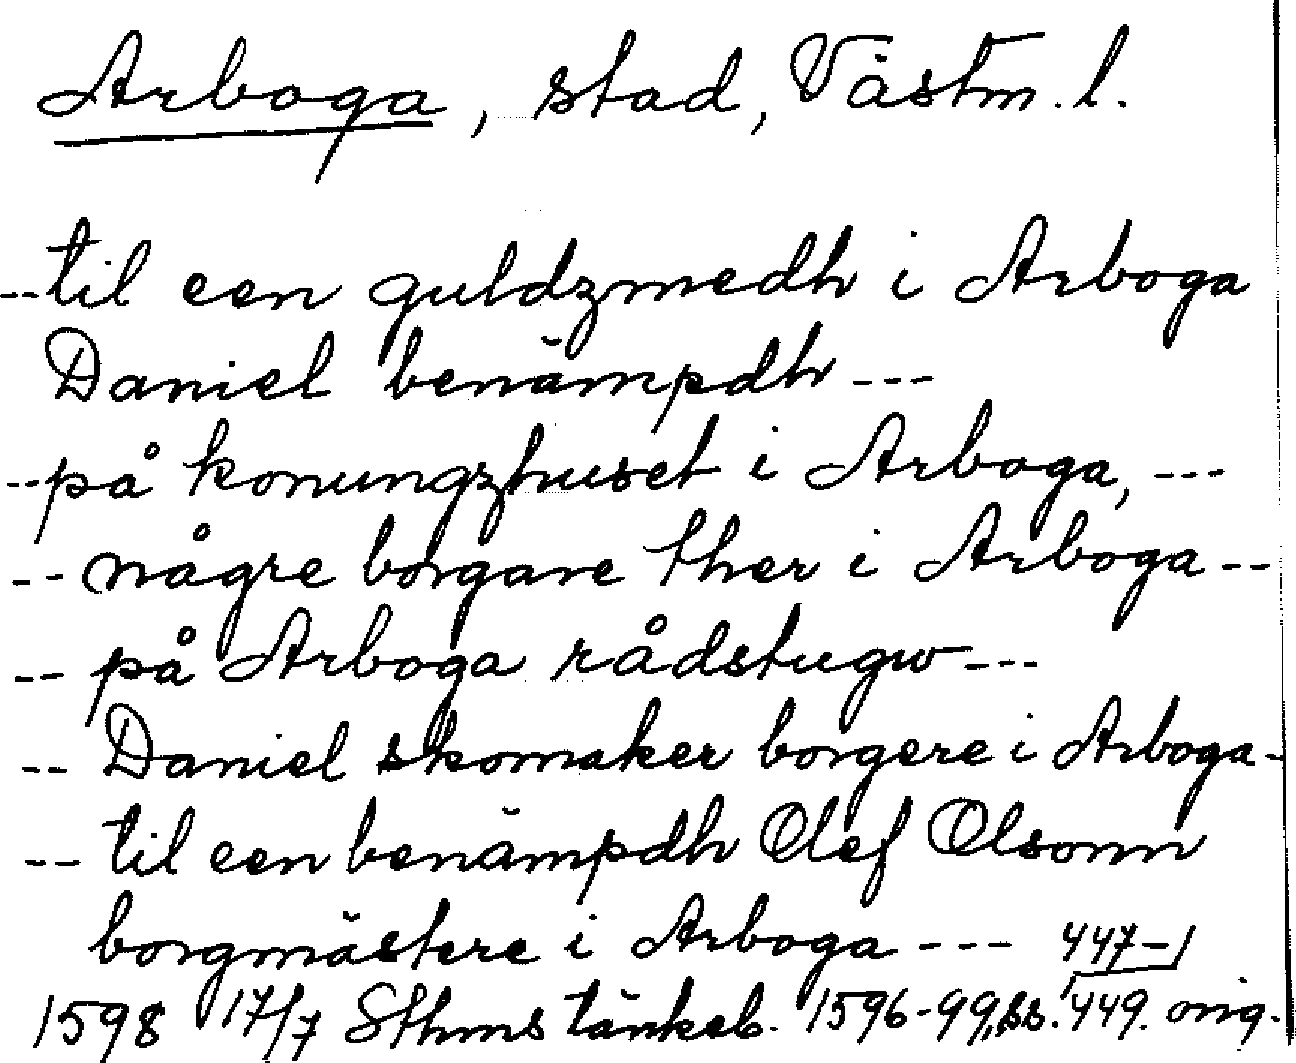 Arboga, stad, Västm. l.
--til een guldzmedh i Arboga
Daniel benämpdh ---
--på konungzhuset i Arboga, ---
-- någre borgare ther i Arboga --
-- på Arboga rådstugw ---
-- Daniel skomaker borgere i Arboga -
-- til een benämpdh Olef Olsonn
borgmästere i Arboga --- 447-
1598 17/7 Sthms tänkeb. 1596-99, ss. 449. orig.